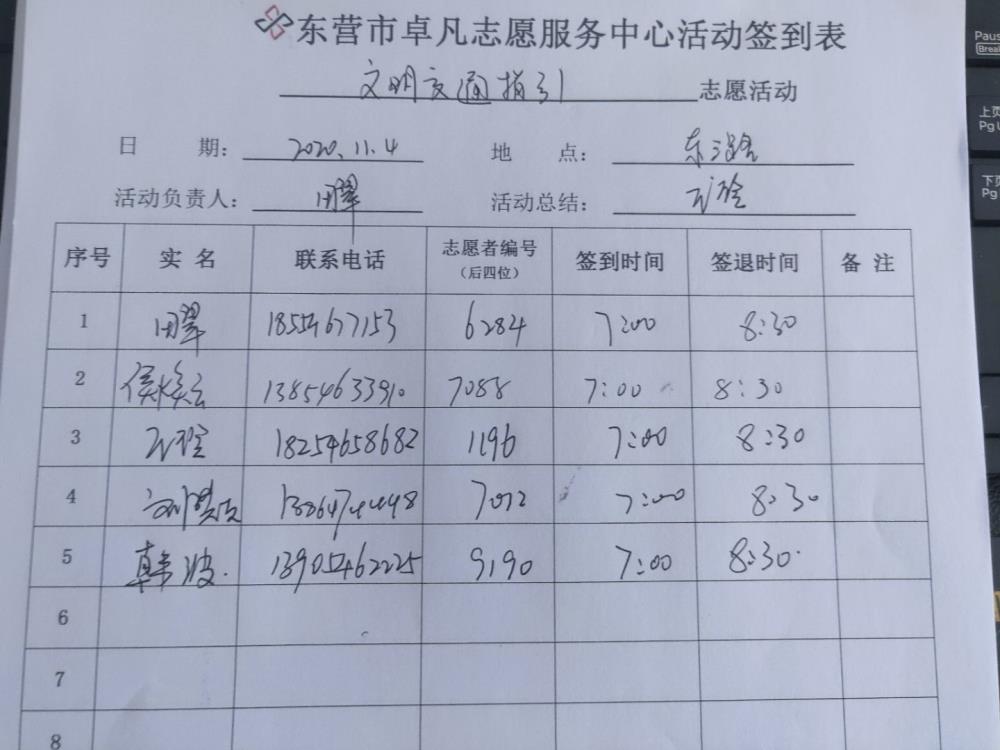 东营市卓凡志愿服务中心活动签到表
文明交通指引 志愿活动
日 期: 2020.11.4 地 点: 东三路
活动负责人: 田翠 活动总结:
序号 实 名 联系电话 志愿者编号(后四位) 签到时间 签退时间 备 注
1 田翠 18554677153 6284 7:00 8:30
2 侯焕云 13854633910 7088 7:00 8:30
3 18254658682 1196 7:00 8:30
4 7012 7:00 8:30
5 韩波 13905462225 9190 7:00 8:30
6
7
8
Pause
Break
上页
Pg U
下页
Pg